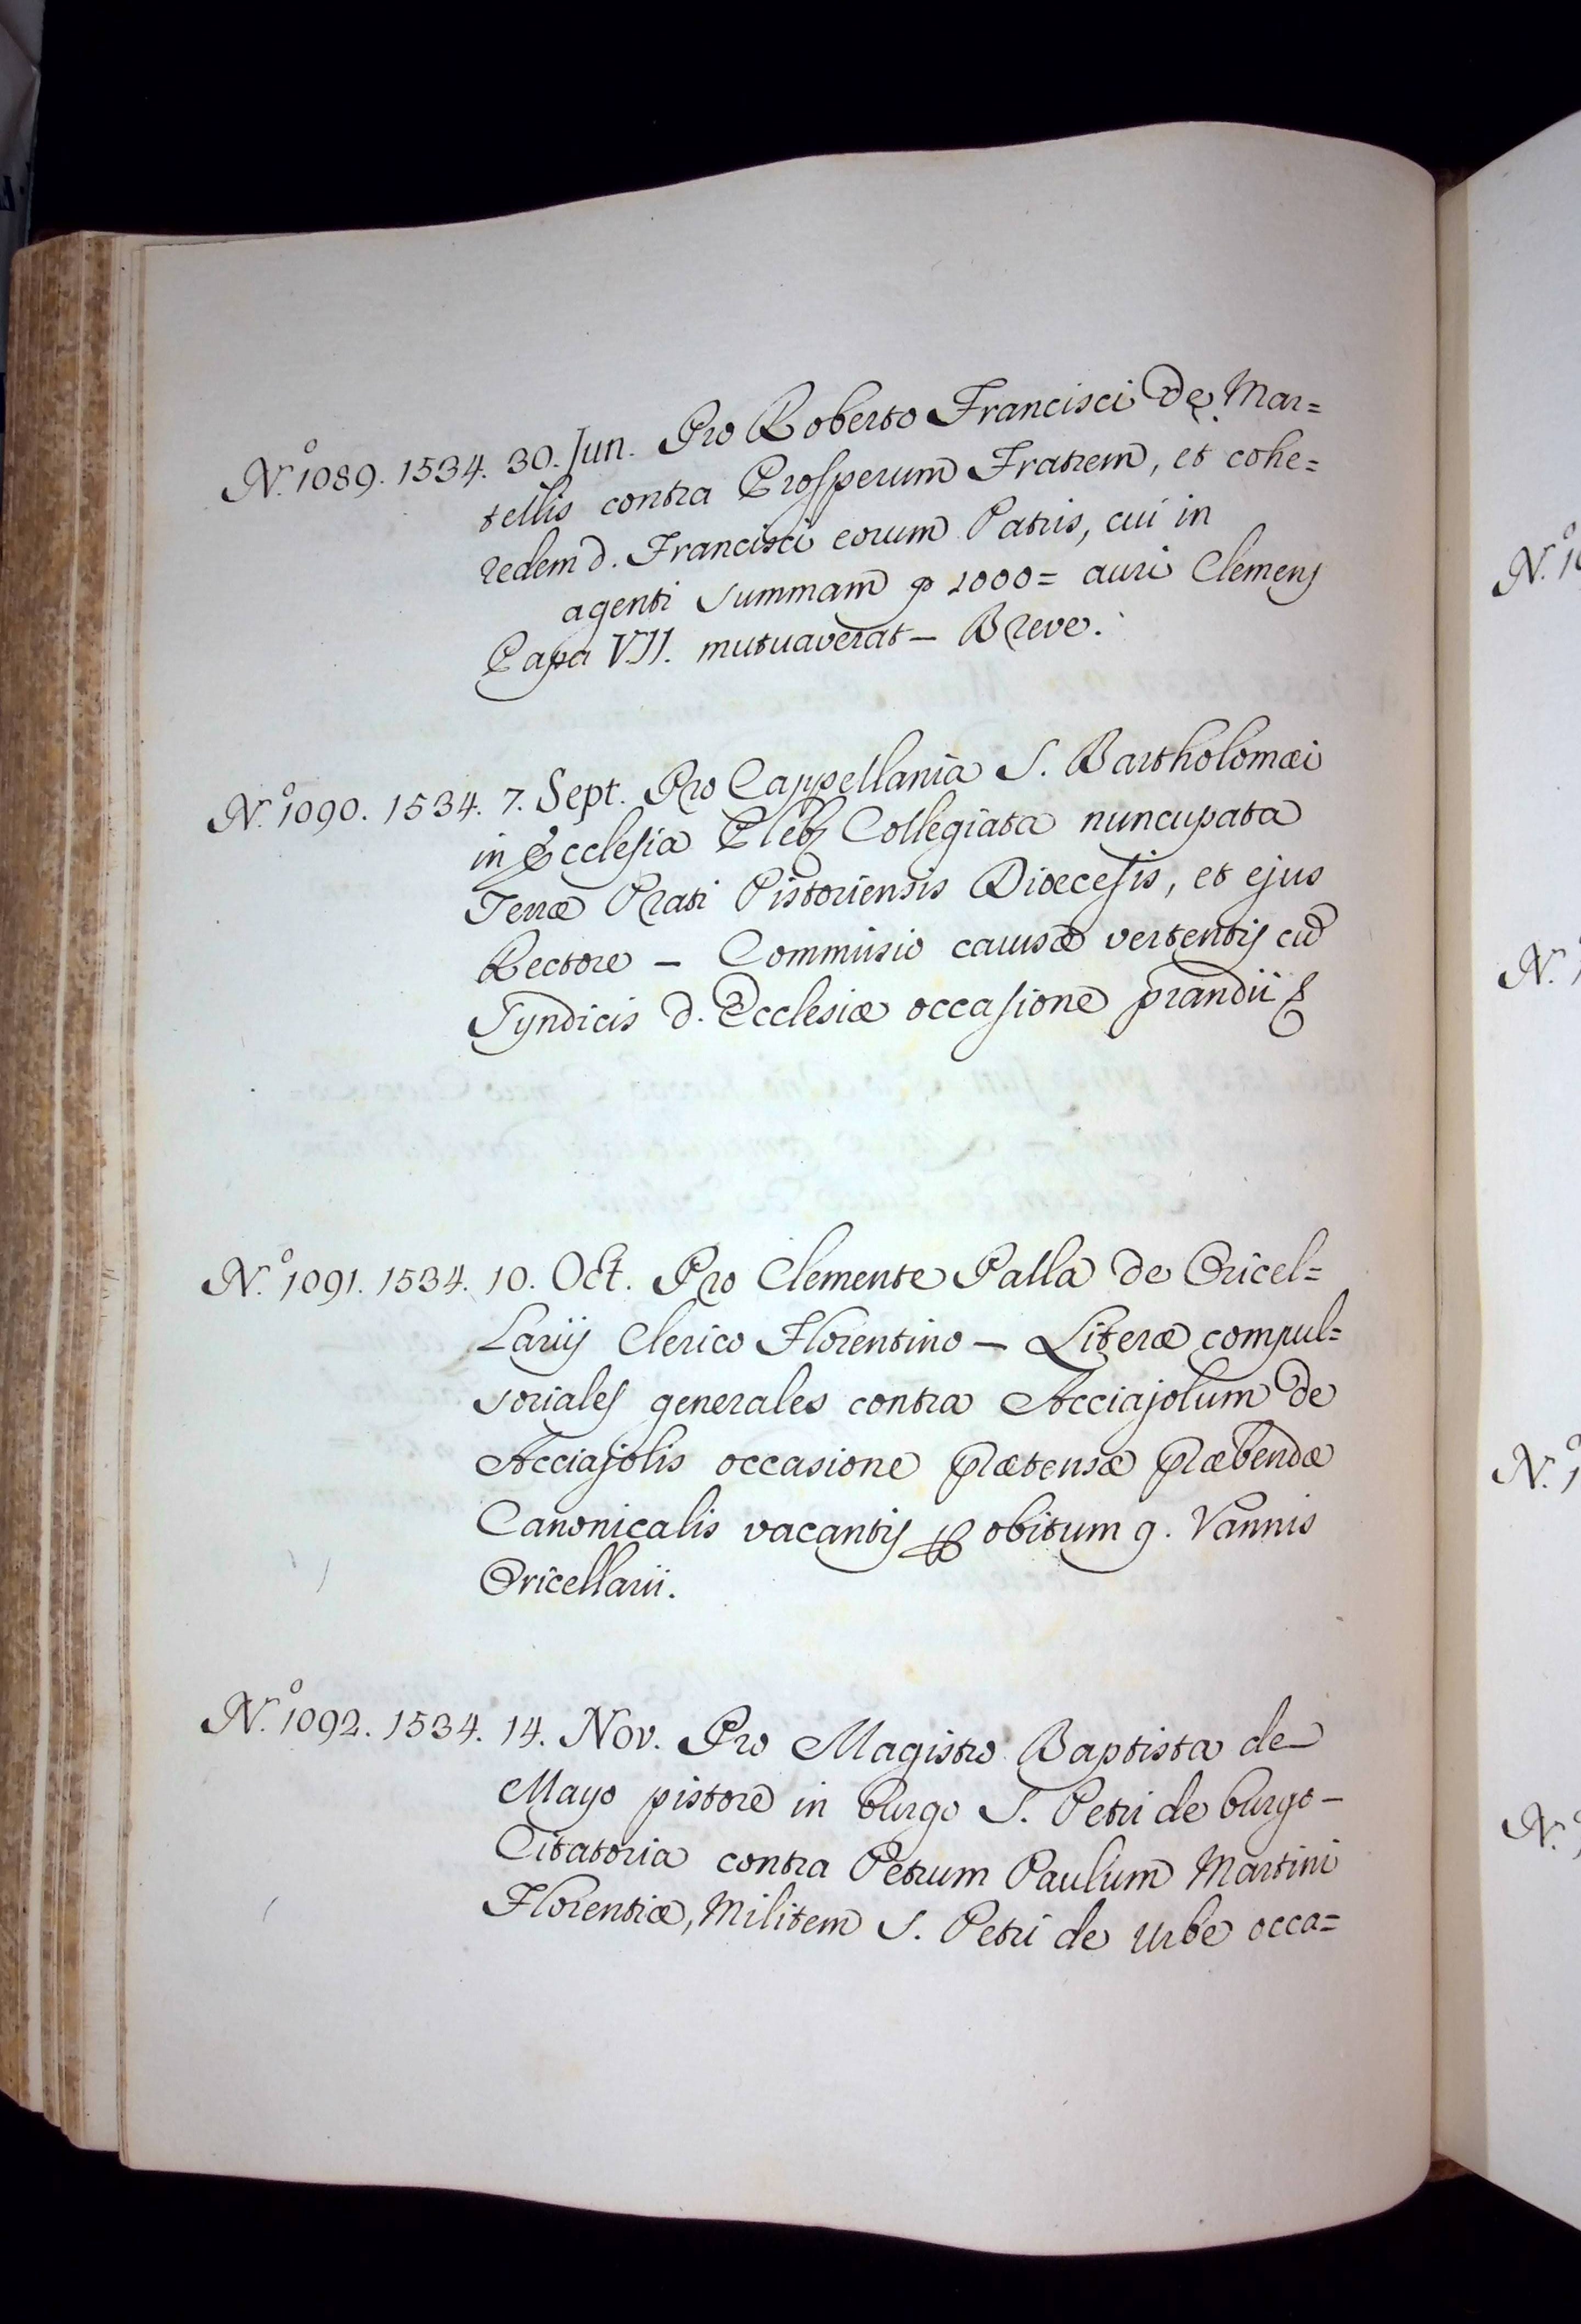 N.º 1089. 1534. 30. Jun. Pro Roberto Francisci de Mar=
tellis contra Prosperum Fratrem, et cohe=
redem d. Francisci eorum Patris, cui in
agenti summam p 1000= auri Clemens
Papa VII. mutuaverat – Breve.
N.º 1090. 1534. 7. Sept. Pro Cappellania S. Bartholomæi
in Ecclesia Pleb Collegiata nuncupata
Terræ Prati Pistoriensis Diœcesis, et ejus
Rectore – Commissio causæ vertentis cũ
Syndicis d. Ecclesiæ occasione prandii
N.º 1091. 1534. 10. Oct. Pro Clemente Palla de Oricel=
lariis Clerico Florentino – Literæ compul=
soriales generales contra Acciajolum de
Acciajolis occasione prætensæ præbendæ
Canonicalis vacantis p obitum q. Vannis
Oricellarii.
N.º 1092. 1534. 14. Nov. Pro Magistro Baptista de
Mayo pistore in burgo S. Petri de burgo –
Citatoria contra Petrum Paulum Martini
Florentiæ, Militem S. Petri de Urbe occa=
N.º 10
N.º 1
N.º 1
N.º